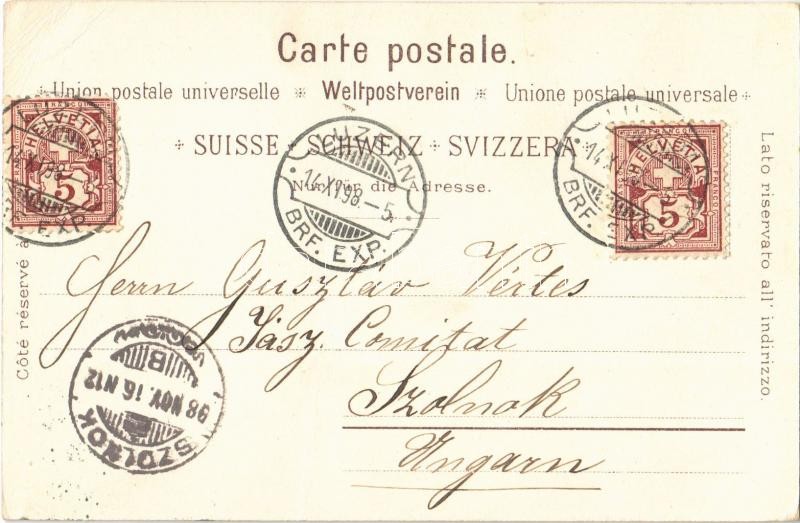 Carte postale.
Union postale universelle ※ Weltpostverein ※ Unione postale universale
SUISSE SCHWEIZ SVIZZERA
Nur für die Adresse.
Côté réservé à
Lato riservato all' indirizzo.
HELVETIA
FRANCO
5
LUZERN
14.XI.98.–5
BRF. EXP.
HELVETIA
FRANCO
5
LUZERN
14.XI
BRF. EXP.
LUZERN
14.XI.98.–5
BRF. EXP.
Herrn Gusztáv Vértes
Jász. Comitat
Szolnok
Ungarn
SZOLNOK
98 NOV 16 N12
B